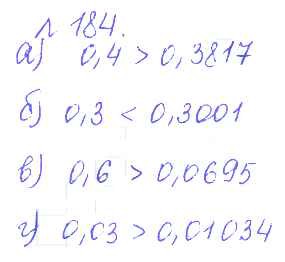 л 184.
а) 0,4 > 0,3817
б) 0,3 < 0,3001
в) 0,6 > 0,0695
г) 0,03 > 0,01034